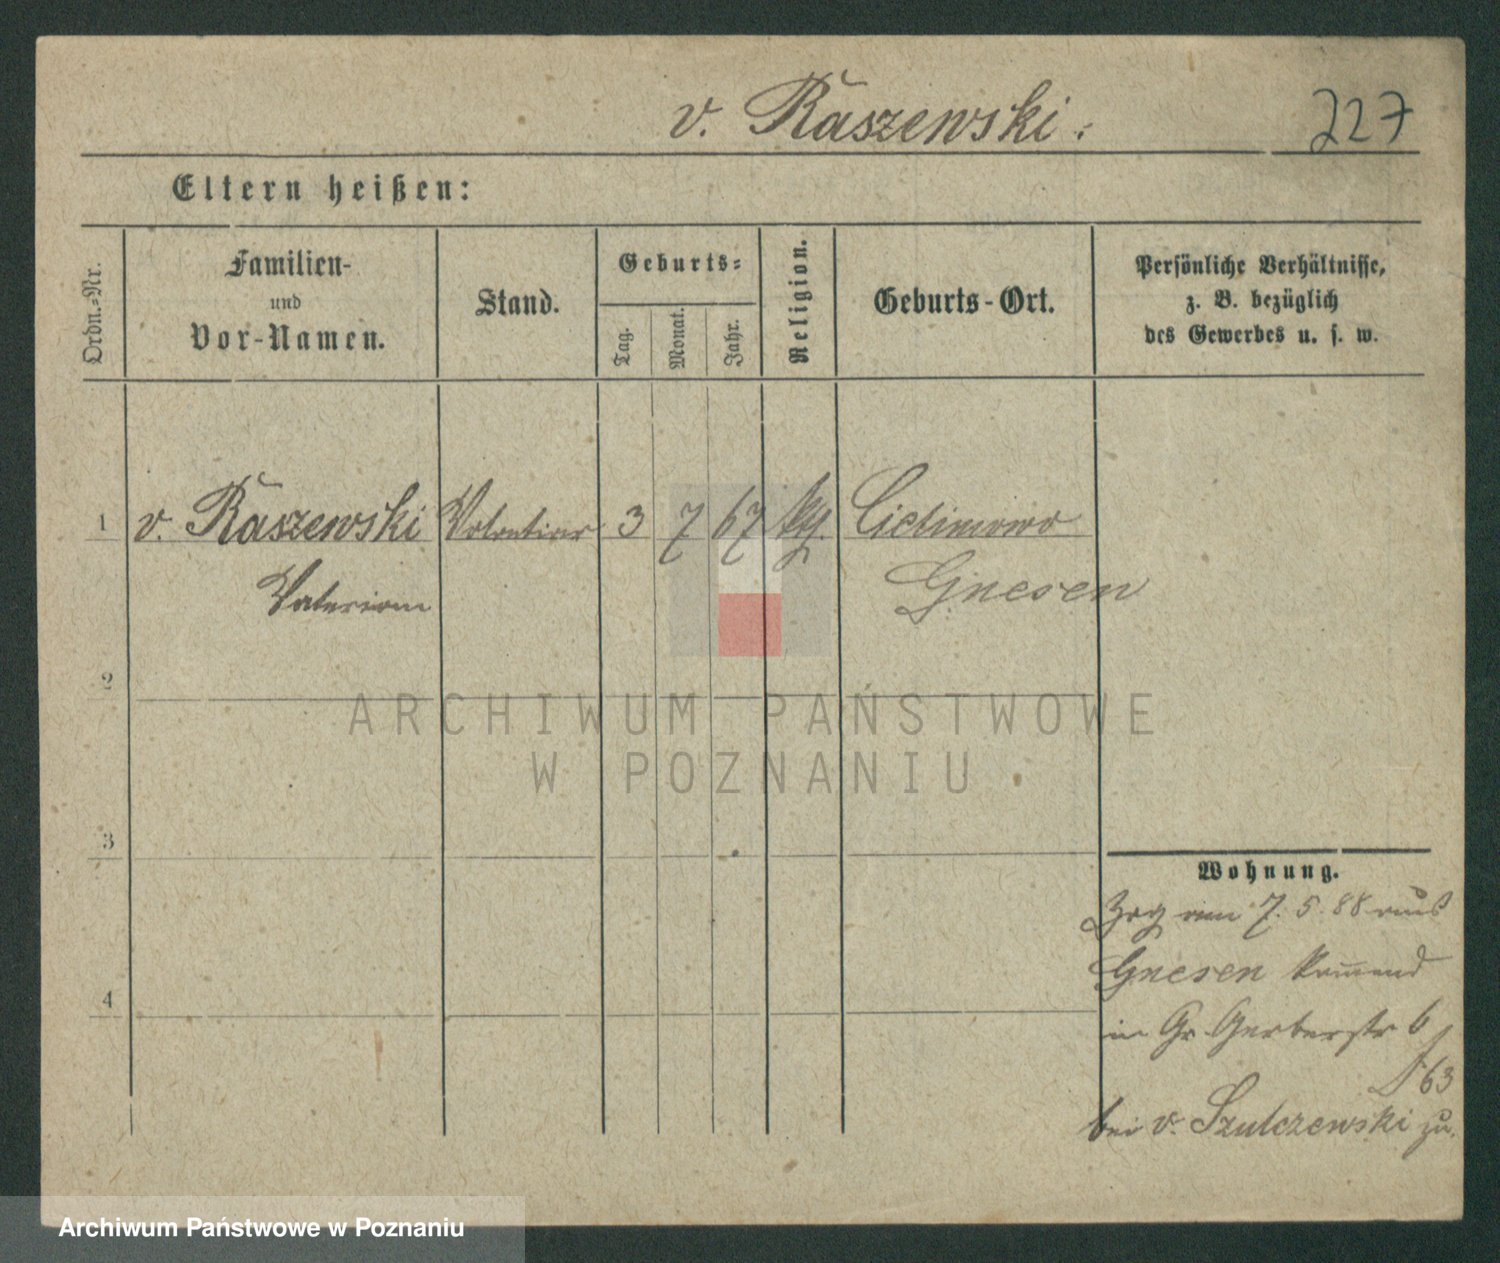 v. Raszewski.
227
Eltern heißen:
Ordn.-Nr.
Familien-
und
Vor-Namen.
Stand.
Geburts-
Tag.
Monat.
Jahr.
Religion.
Geburts-Ort.
Persönliche Verhältnisse,
z. B. bezüglich
des Gewerbes u. s. w.
1 v. Raszewski Volontair 3 7 67 kth.
Valerian Gnesen
2
ARCHIWUM PAŃSTWOWE
W POZNANIU
3
Wohnung.
Zog am 7. 5. 88 aus
Gnesen kom̄end
4
in Gr. Gerberstr 6
63
bei v. Szulczewski zu.
Archiwum Państwowe w Poznaniu